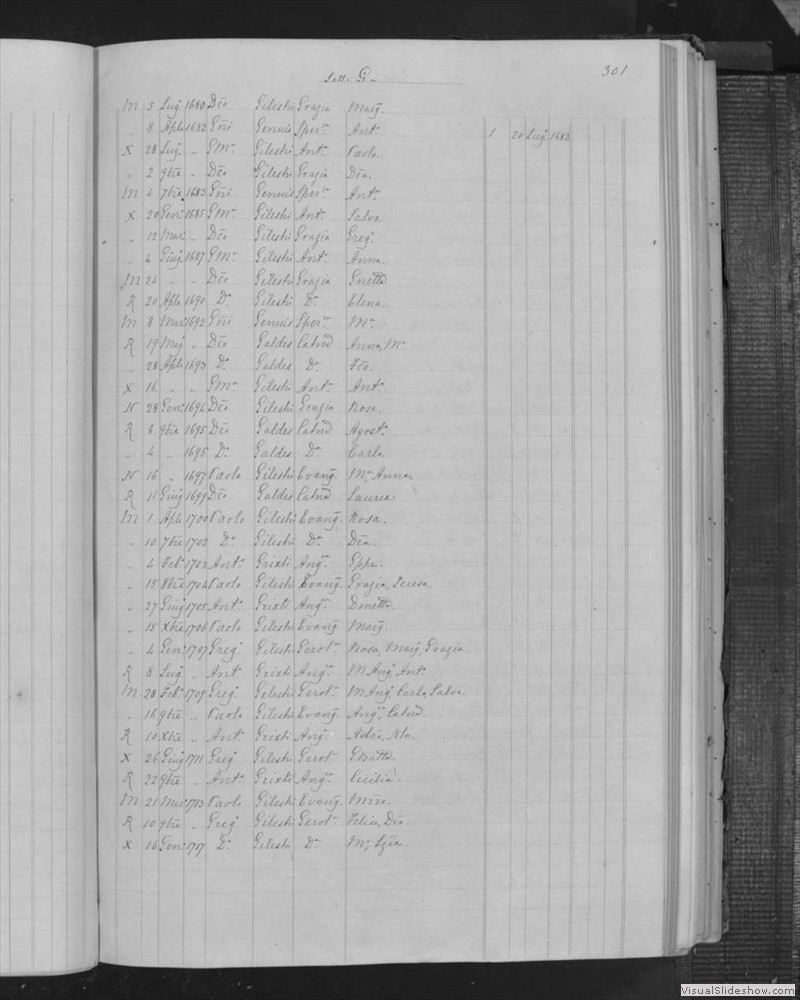 301
Lett. G.
M 5 Lug. 1680 Dẽo Gileshi Grazia Marg̃.
„ 8 Aple 1682 Gñi Genuis Sper.ª Ant.
1 20 Lug. 1682
X 28 Lug. „ GM.ª Gileshi Ant.ª Paolo.
„ 2 9bre „ Dẽo Gileshi Grazia Dẽa.
M 4 7bre 1683 Gñi Genuis Sper.ª Ant.
X 20 Gen. 1685 GM.ª Gileshi Ant.ª Salv.
„ 12 Mar. „ Dẽo Gileshi Grazia Greg.
„ 4 Giug. 1687 GM.ª Gileshi Ant.ª Anna.
M 24 „ „ Dẽo Gileshi Grazia
R 20 Aple 1690 D.º Gileshi D.ª Elena.
M 8 Mar. 1692 Gñi Genuis Sper.ª M.ª
R 19 Mag. „ Dẽo Galdes Catñd Anna, M.ª
„ 28 Aple 1693 D.º Galdes D.ª
X 16 „ „ GM.ª Gileshi Ant.ª Ant.
N 28 Gen. 1694 Dẽo Gileshi Grazia Rosa.
R 6 9bre 1695 Dẽo Galdes Catñd Agost.
„ 4 „ 1695 D.º Galdes D.ª Carlo.
N 16 „ 1697 Paolo Gileshi Evang̃. M.ª Anna.
R 11 Giug. 1699 Dẽo Galdes Catñd Laurea
M 1 Aple 1700 Paolo Gileshi Evang̃. Rosa.
„ 10 7bre 1702 D.º Gileshi D.ª Dẽa.
„ 4 Feb. 1703 Ant.º Grixti Ang.ª Gppe.
„ 15 8bre 1704 Paolo Gileshi Evang̃. Grazia, Teresa.
„ 27 Giug. 1705 Ant.º Grixti Ang.ª
„ 15 Xbre 1706 Paolo Gileshi Evang̃. Marg̃.
„ 4 Gen. 1707 Greg. Gileshi Gerol.ª Rosa, Marg̃, Grazia.
R 8 Lug. „ Ant. Grixti Ang.ª M Ang, Ant.
M 28 Feb. 1709 Greg. Gileshi Gerol.ª M Ang, Carlo, Salvo.
„ 16 9bre „ Paolo Gileshi Evang̃. Ang.ª, Catñd.
R 10 Xbre „ Ant. Grixti Ang.ª
X 26 Giug. 1711 Greg. Gileshi Gerol.ª GBatta.
R 22 9bre „ Ant.º Grixti Ang.ª Cecilia.
M 21 Mar. 1713 Paolo Gileshi Evang̃.
R 10 9bre „ Greg. Gileshi Gerol.ª Felice, Dẽo
X 16 Gen. 1717 D.º Gileshi D.ª M.ª
VisualSlideshow.com